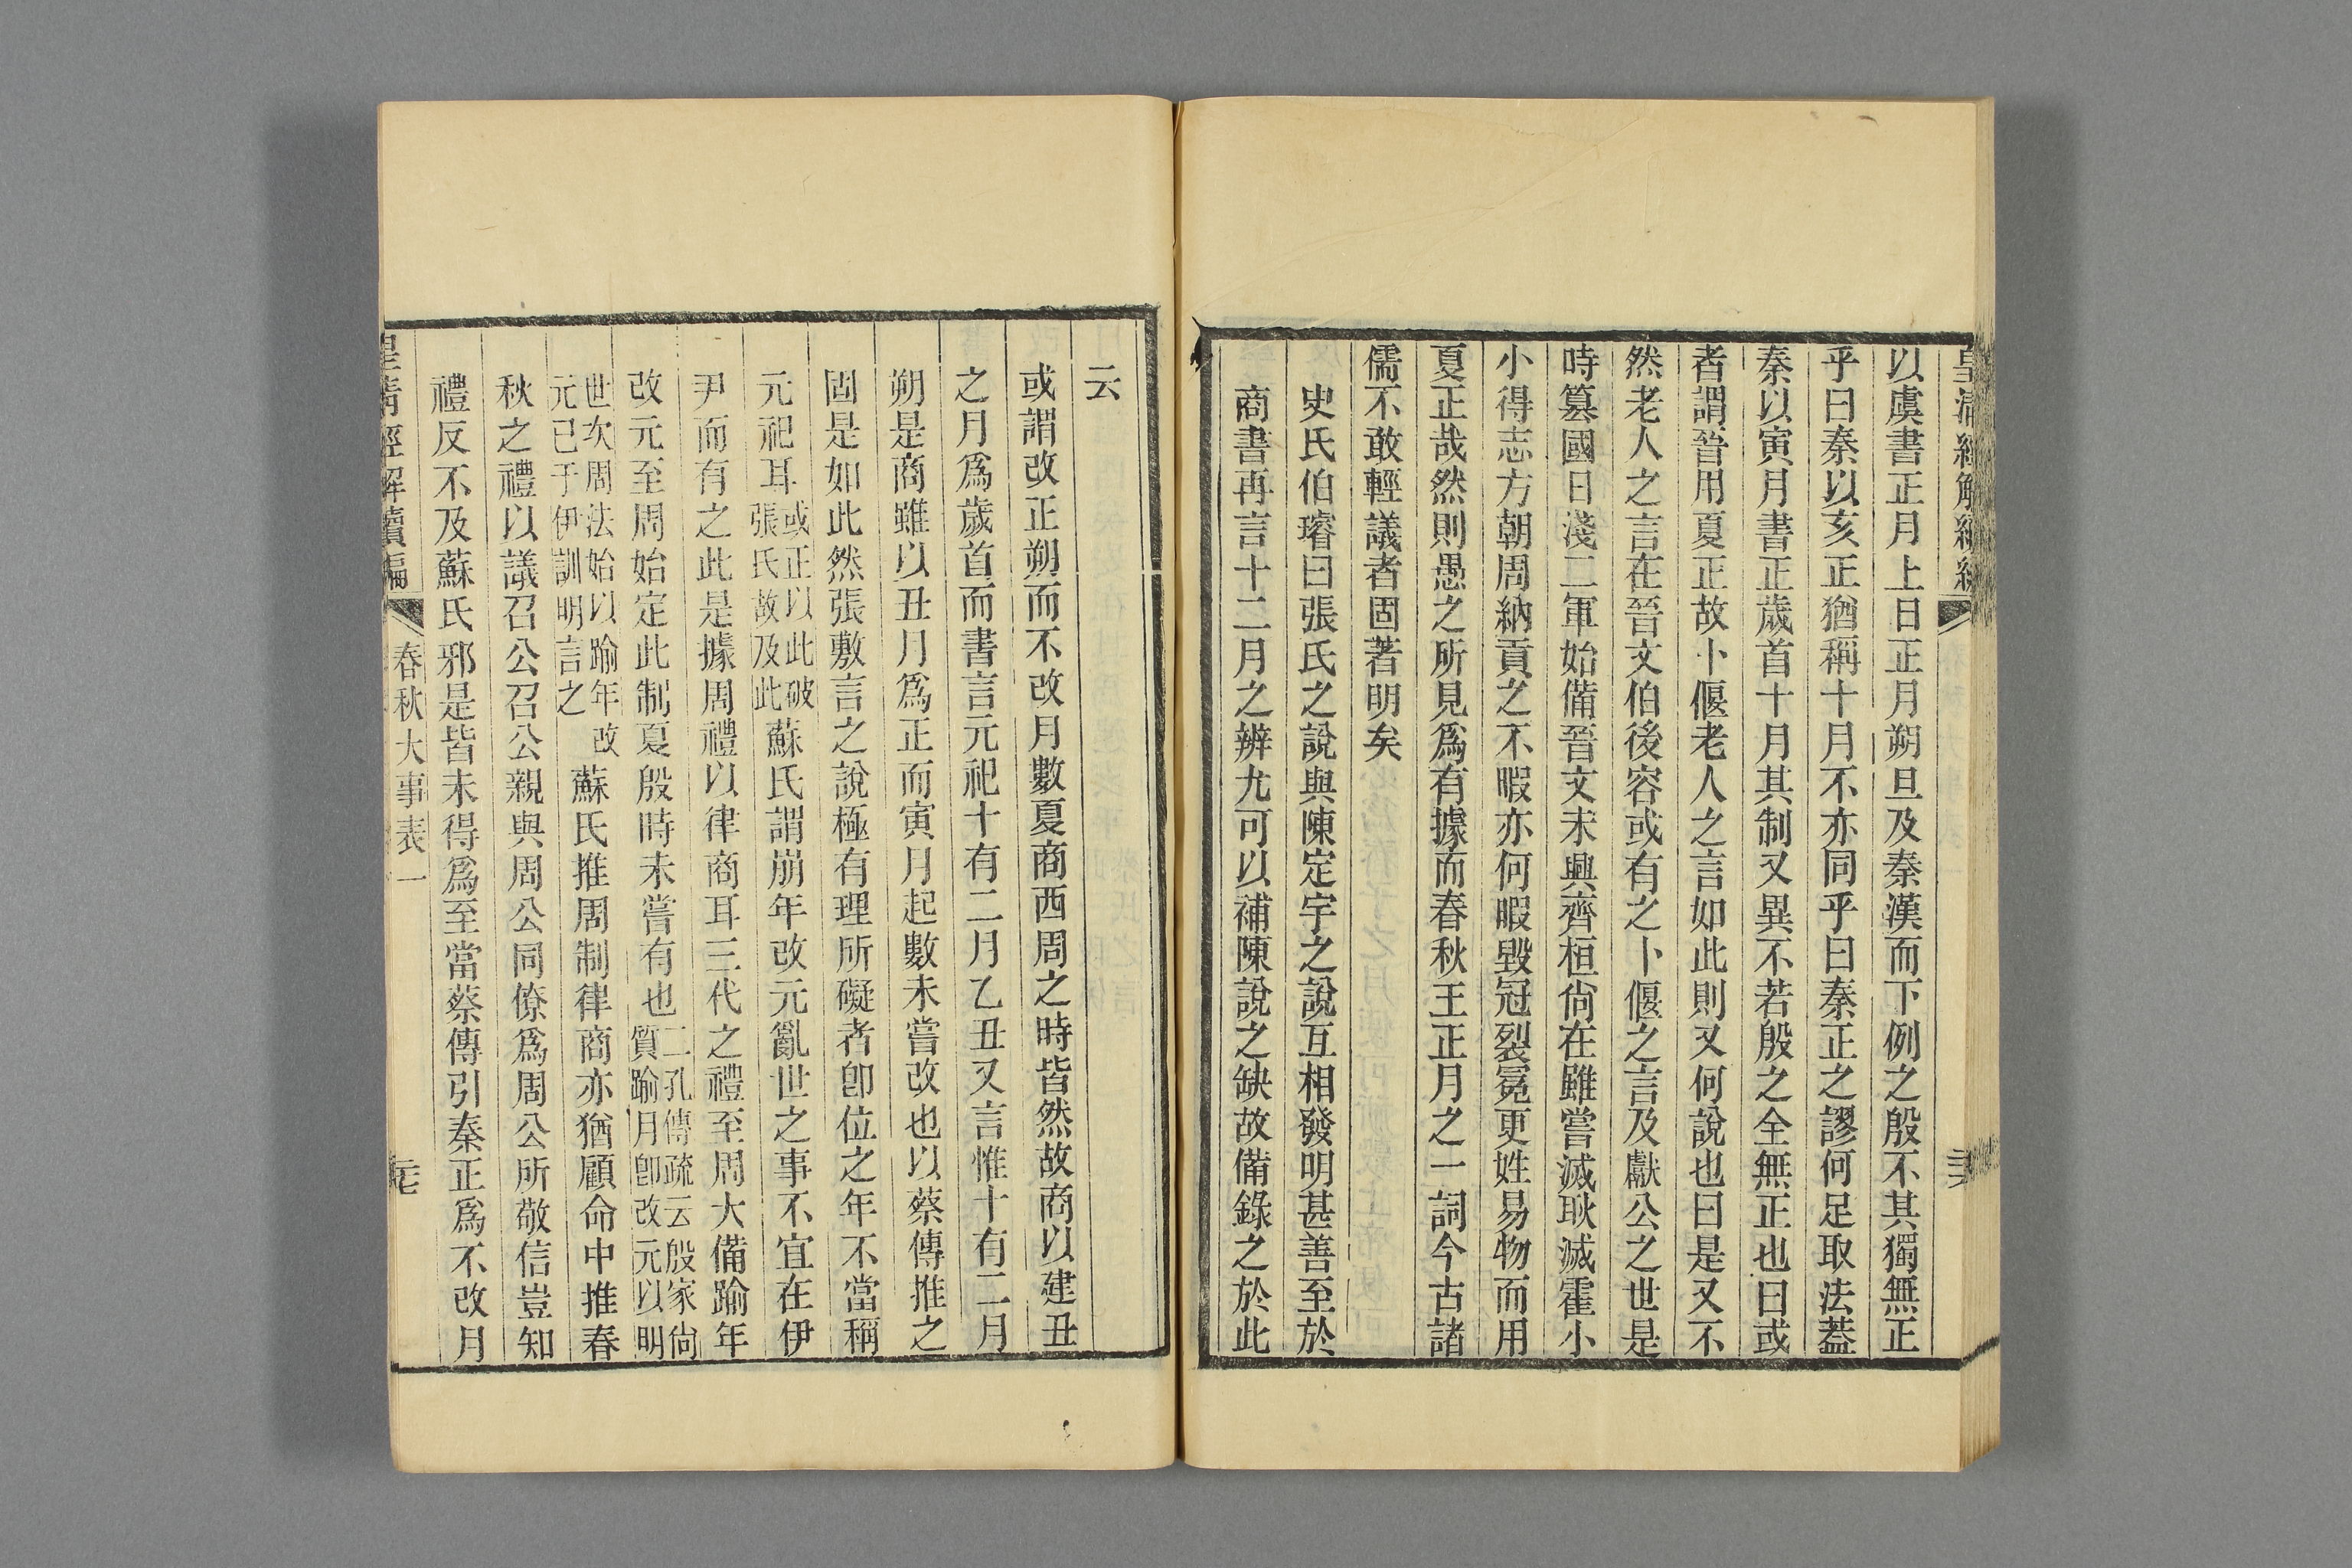 皇清經解續編
以虞書正月上日正月朔旦及秦漢而下例之殷不其獨無正
乎曰秦以亥正猶稱十月不亦同乎曰秦正之謬何足取法蓋
秦以寅月書正歲首十月其制又異不若殷之全無正也曰或
者謂晉用夏正故卜偃老人之言如此則又何說也曰是又不
然老人之言在晉文伯後容或有之卜偃之言及獻公之世是
時篡國日淺二軍始備晉文未興齊桓尙在雖嘗滅耿滅霍小
小得志方朝周納貢之不暇亦何暇毀冠裂冕更姓易物而用
夏正哉然則愚之所見爲有據而春秋王正月之一詞今古諸
儒不敢輕議者固著明矣
史氏伯璿曰張氏之說與陳定宇之說互相發明甚善至於
商書再言十二月之辨尤可以補陳說之缺故備錄之於此
云
或謂改正朔而不改月數夏商西周之時皆然故商以建丑
之月爲歲首而書言元祀十有二月乙丑又言惟十有二月
朔是商雖以丑月爲正而寅月起數未嘗改也以蔡傳推之
固是如此然張敷言之說極有理所礙者卽位之年不當稱
元祀耳或正以此破張氏故及此蘇氏謂崩年改元亂世之事不宜在伊
尹而有之此是據周禮以律商耳三代之禮至周大備踰年
改元至周始定此制夏殷時未嘗有也二孔傳疏云殷家尙質踰月卽改元以明
世次周法始以踰年改元已于伊訓明言之蘇氏推周制律商亦猶顧命中推春
秋之禮以議召公召公親與周公同僚爲周公所敬信豈知
禮反不及蘇氏邪是皆未得爲至當蔡傳引秦正爲不改月
皇清經解續編 春秋大事表一